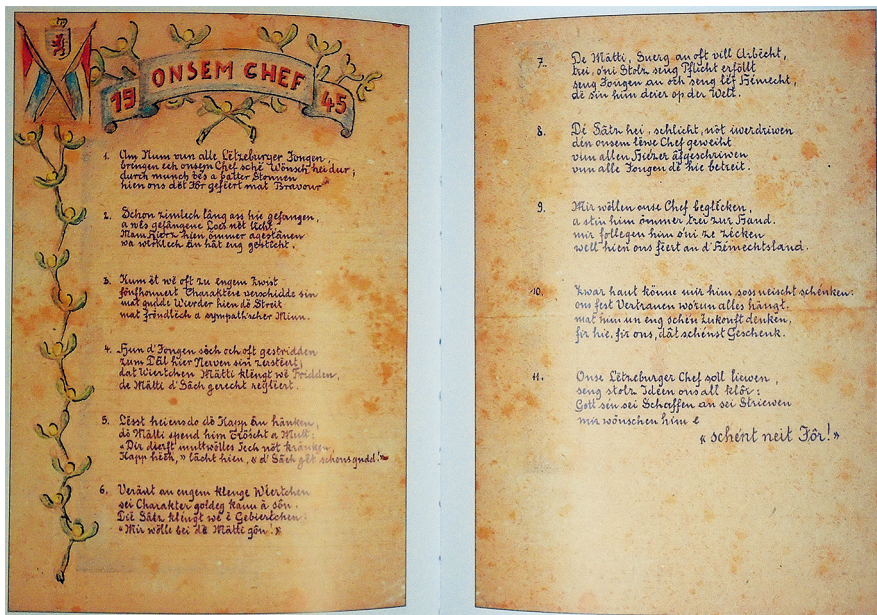 19 ONSEM CHEF 45
1. Am Num vun alle Lëtzeburger Jongen,
brengen ech onsem Chef sche Wönsch hei dur;
durch munch bés a batter Stonnen
hien ons dët Jôr gefeert mat Bravour
2. Schon zimlech lâng ass hie gefangen,
a wés gefângene Loos nët licht.
Mam Hierz hien ömmer agestânen
wa wirklech ân hât eng gesticht.
3. Kum ët wé oft zu engem Zwist
fönfhonnert Charaktere verschidde sin
mat gudde Wierder hien dë Streit
mat fröndlech a sympath'scher Minn.
4. Hun d'Jongen sech och oft gestridden
zum Dêl hier Nerven sin zerstéert,
dat Wiertchen Mätti klengt wé Fridden,
de Mätti d'Sâch gerecht regléert.
5. Lésst heiensdo dë Kapp ân hänken,
dë Mätti spend him Tröscht a Mutt:
«Dir dierft muttwölles Iech nët kränken,
Kapp héch,» lâcht hien, «d'Sâch gët schons gudd!»
6. Verânt an engem klenge Wiertchen
sei Charakter goldeg kann à sôn.
Dië Sâtz klengt wé ë Gebiertchen:
«Mir wölle bei dë Mätti gôn!»
7. De Mätti, Suerg an oft vill Arbécht,
trei, oni Stolz seng Pflicht erföllt
seng Jongen an och seng léf Hémecht,
dé sin him deier op der Welt.
8. Dé Sâtz hei, schlicht, nöt iwerdriwen
den onsem léwe Chef geweiht
vun allen Hierzer âfgeschriwen
vun alle Jongen dé hie betreit.
9. Mir wöllen onse Chef beglécken,
a stin him ömmer trei zur Hand.
mir follegen him oni ze zécken
well hien ons féert an d'Hémechtsland.
10. Zwar haut könne mir him soss neischt schénken:
ons fest Vertrauen worun alles hängt.
mat him un eng schén Zukonft denken,
fir hie, fir ons, dât schénst Geschenk.
11. Onse Lëtzeburger Chef soll liewen,
seng stolz Ideen ons all klôr:
Gott sin sei Schaffen an sei Striewen
mir wönschen him e
«schént neit Jôr!»